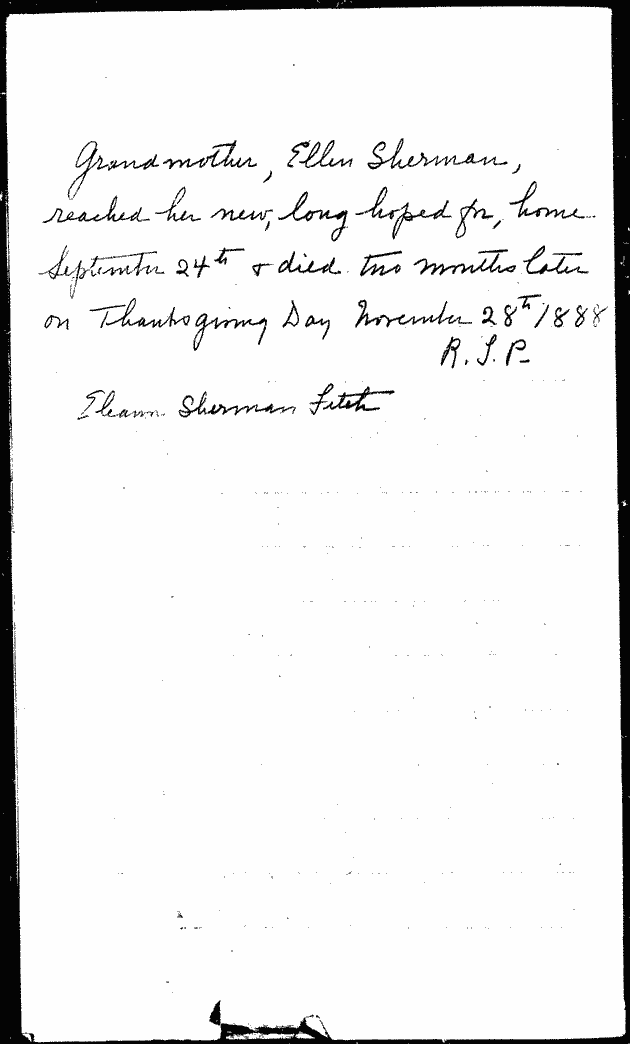 Grandmother, Ellen Sherman,
reached her new, long hoped for, home
September 24th & died two months later
on Thanksgiving Day November 28th 1888
R.I.P.
Eleanor Sherman Fitch